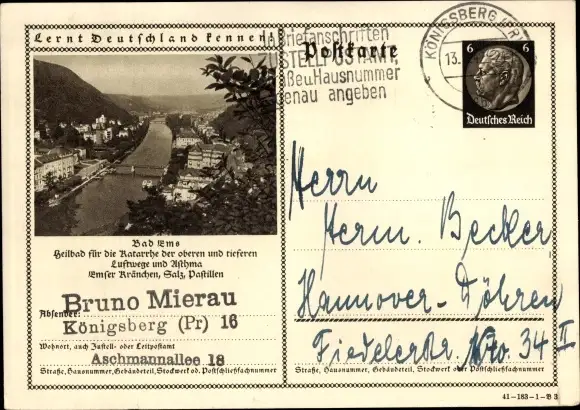 Lernt Deutschland kennen!
Briefanschriften
ZUSTELLPOSTAMT,
Straße u Hausnummer
genau angeben
KÖNIGSBERG (PR)
13.
Postkarte
6 6
Deutsches Reich
Bad Ems
Heilbad für die Katarrhe der oberen und tieferen
Luftwege und Asthma
Emser Kränchen, Salz, Pastillen
Absender:
Bruno Mierau
Königsberg (Pr) 16
Wohnort, auch Zustell- oder Leitpostamt
Aschmannallee 18
Straße, Hausnummer, Gebäudeteil, Stockwerk od. Postschließfachnummer
Herrn
Herm. Becker
Hannover-Döhren
Fiedelerstr. No. 34 II
Straße, Hausnummer, Gebäudeteil, Stockwerk oder Postschließfachnummer
41-183-1-B 3